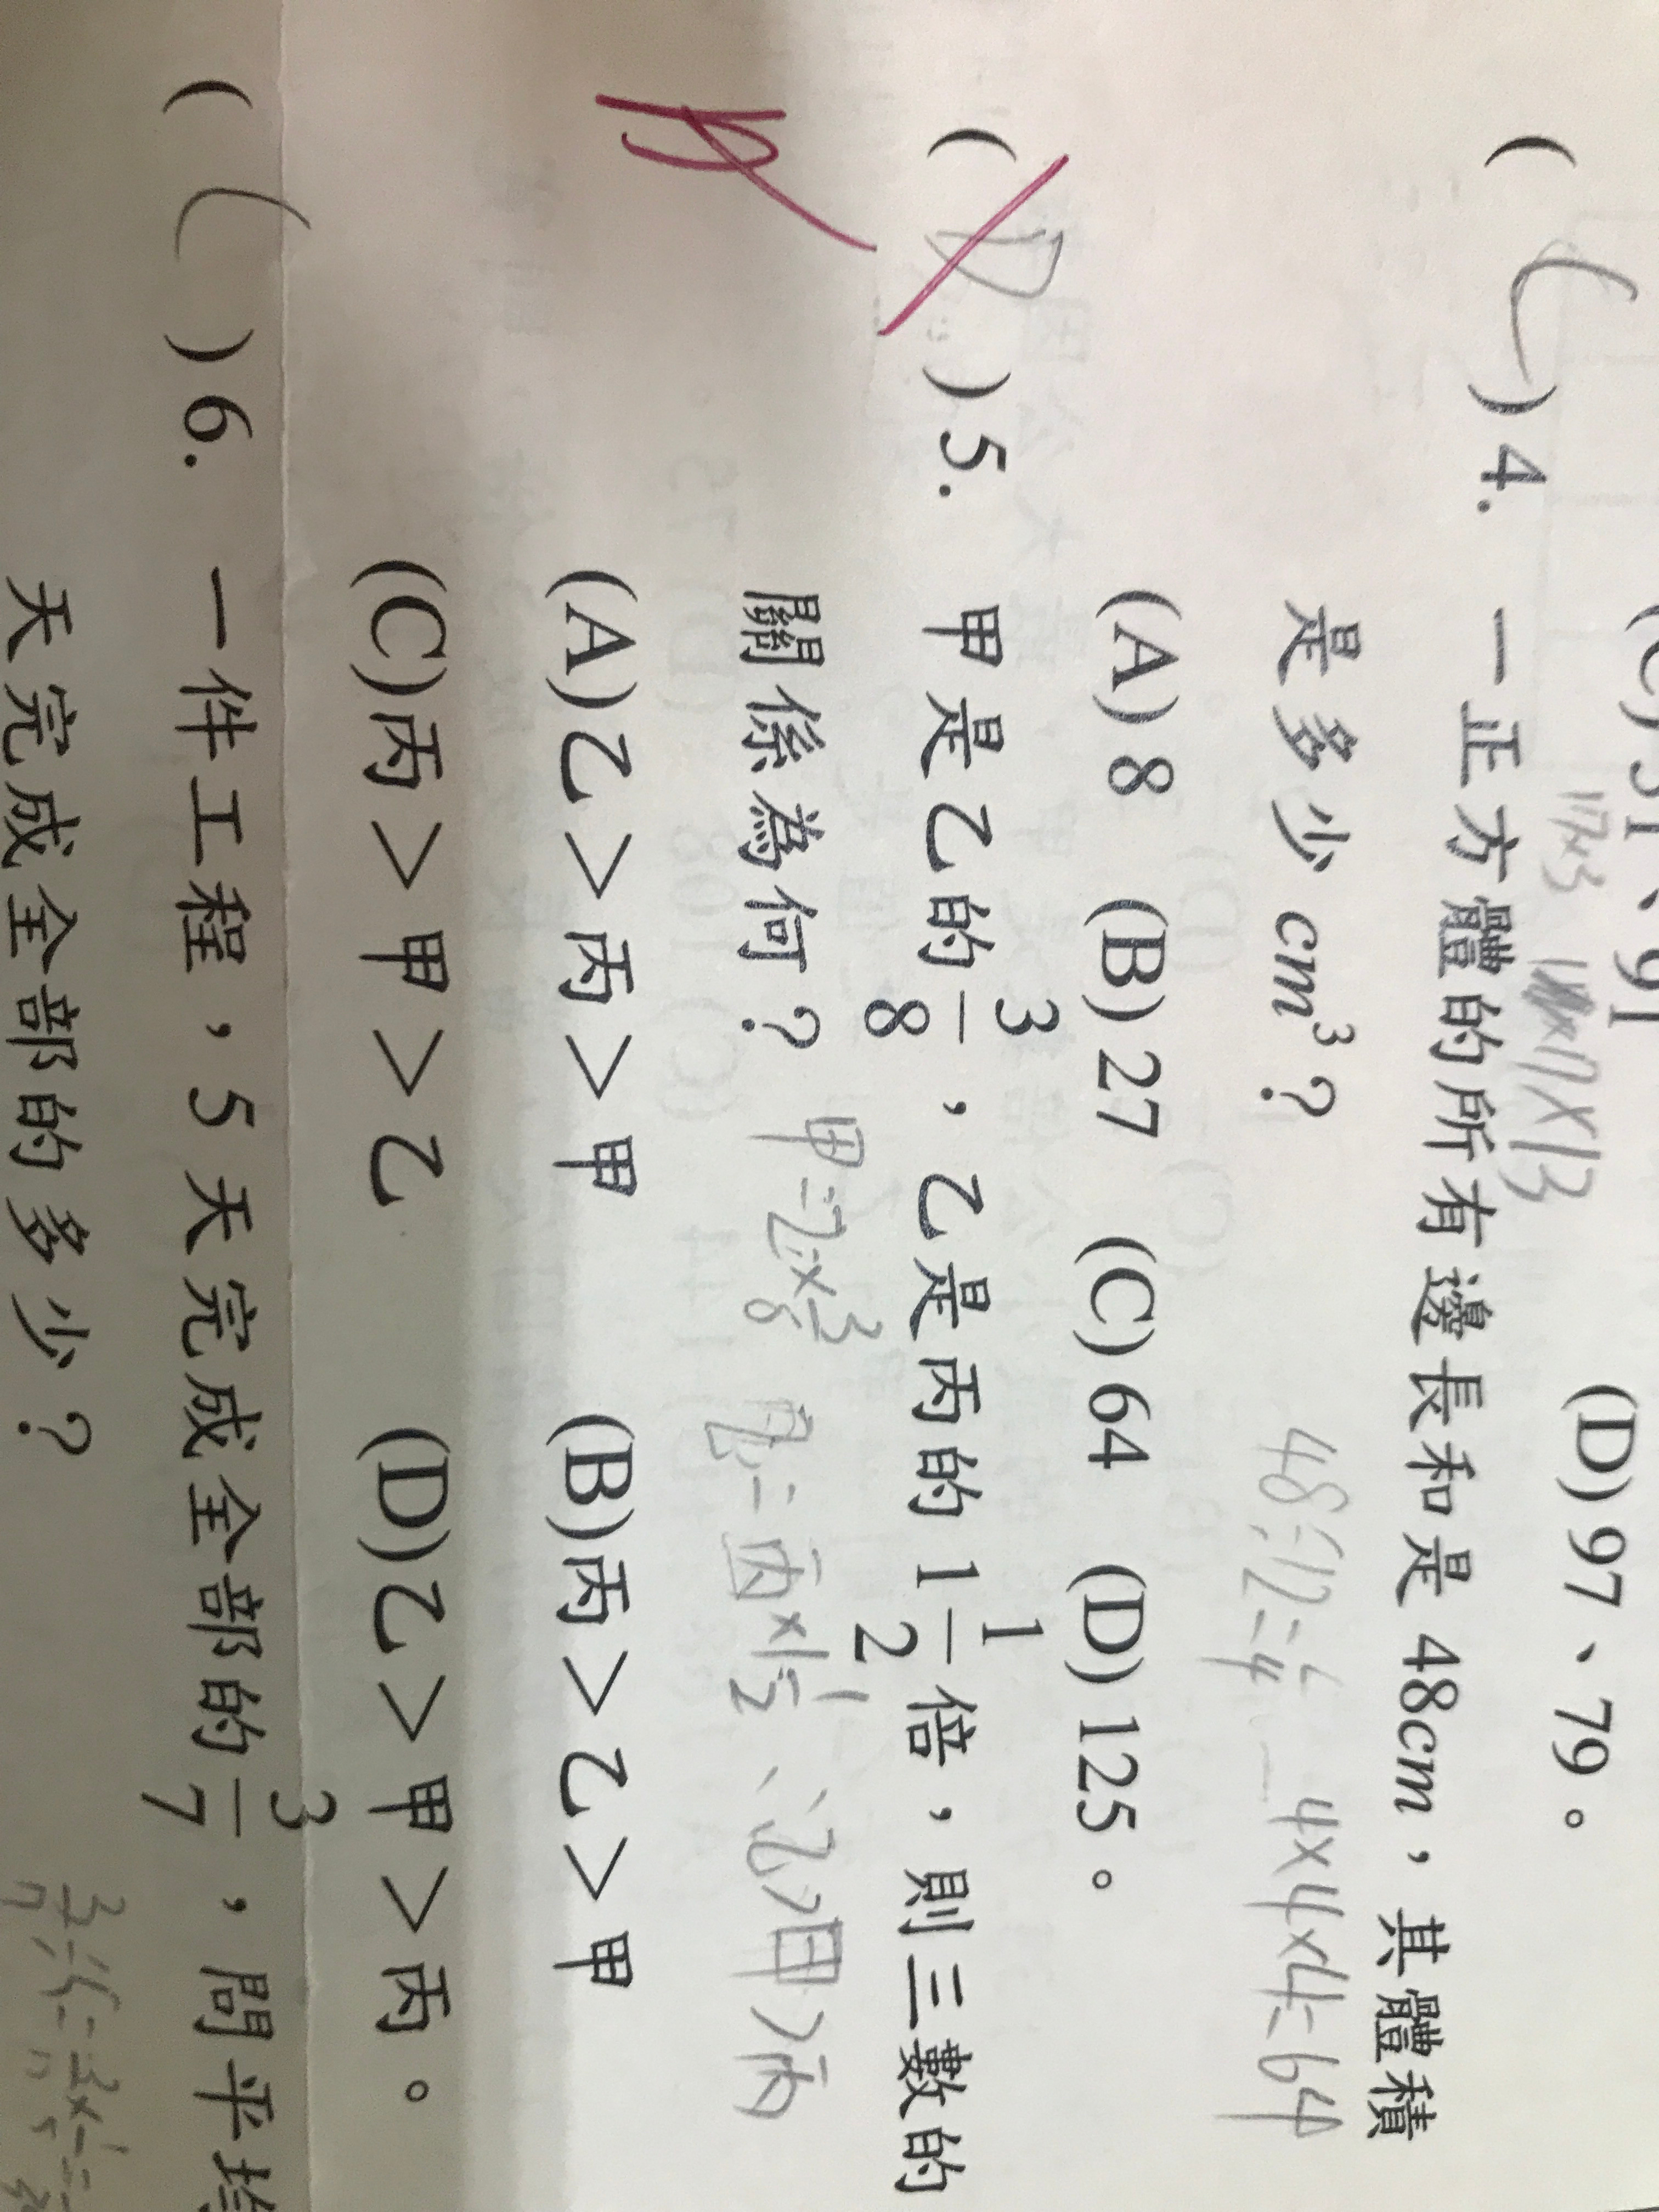 (C) 51、91
(D) 97、79。
17×3 ×13
( C ) 4. 一正方體的所有邊長和是 48cm，其體積
是多少 cm³？ 48÷12=4 4×4×4=64
(A) 8 (B) 27 (C) 64 (D) 125。
( D ) 5. 甲是乙的 3/8，乙是丙的 1 1/2 倍，則三數的
關係為何？ 甲=乙×3/8 乙=丙×1 1/2、乙>甲>丙
(A)乙>丙>甲 (B)丙>乙>甲
(C)丙>甲>乙 (D)乙>甲>丙。
( C ) 6. 一件工程，5 天完成全部的 3/7，問平均
天完成全部的多少？